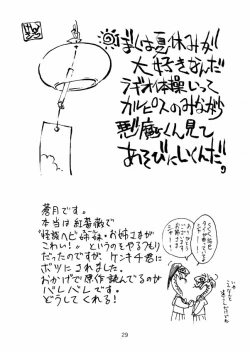 ぼくは夏休みが
大好きなんだ
ラジオ体操して
カルピスのみながら
悪魔くん見て
あそびにいくんだ。
蒼月です。
本当は紅薔薇で
"怪談ヘビ姉妹・お姉さまが
こわい!"というのをやるつもり
だったのですが、ケンキチ君に
ボツにされました。
おかげで原作読んでるのが
バレバレです。
どうしてくれる!
29